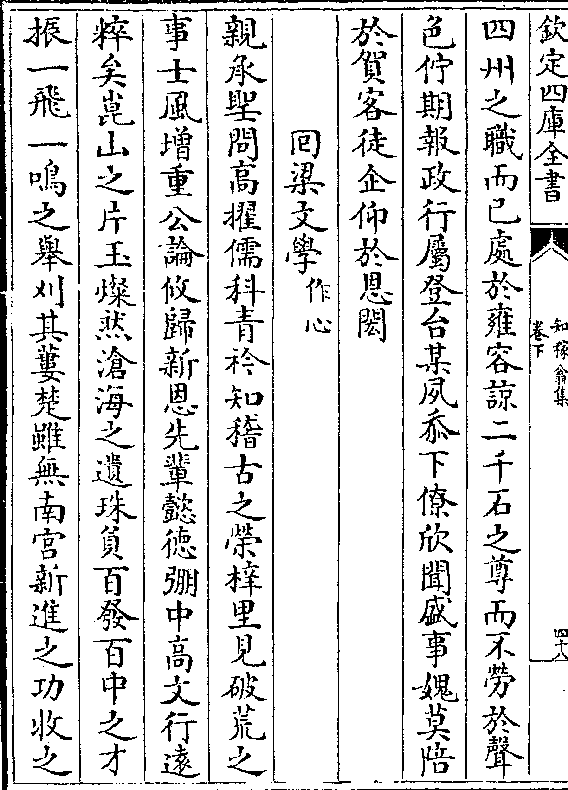 欽定四庫全書
知稼翁集
卷下
四十八
四州之職而已處於雍容諒二千石之尊而不勞於聲
色佇期報政行屬登台某夙忝下僚欣聞盛事媿莫陪
於賀客徒企仰於恩閎
回梁文學作心
親承聖問高擢儒科青衿知稽古之榮梓里見破荒之
事士風增重公論攸歸新恩先輩懿徳弸中高文行逺
粹矣崑山之片玉燦然滄海之遺珠負百發百中之才
振一飛一鳴之舉刈其蔞楚雖無南宮新進之功收之